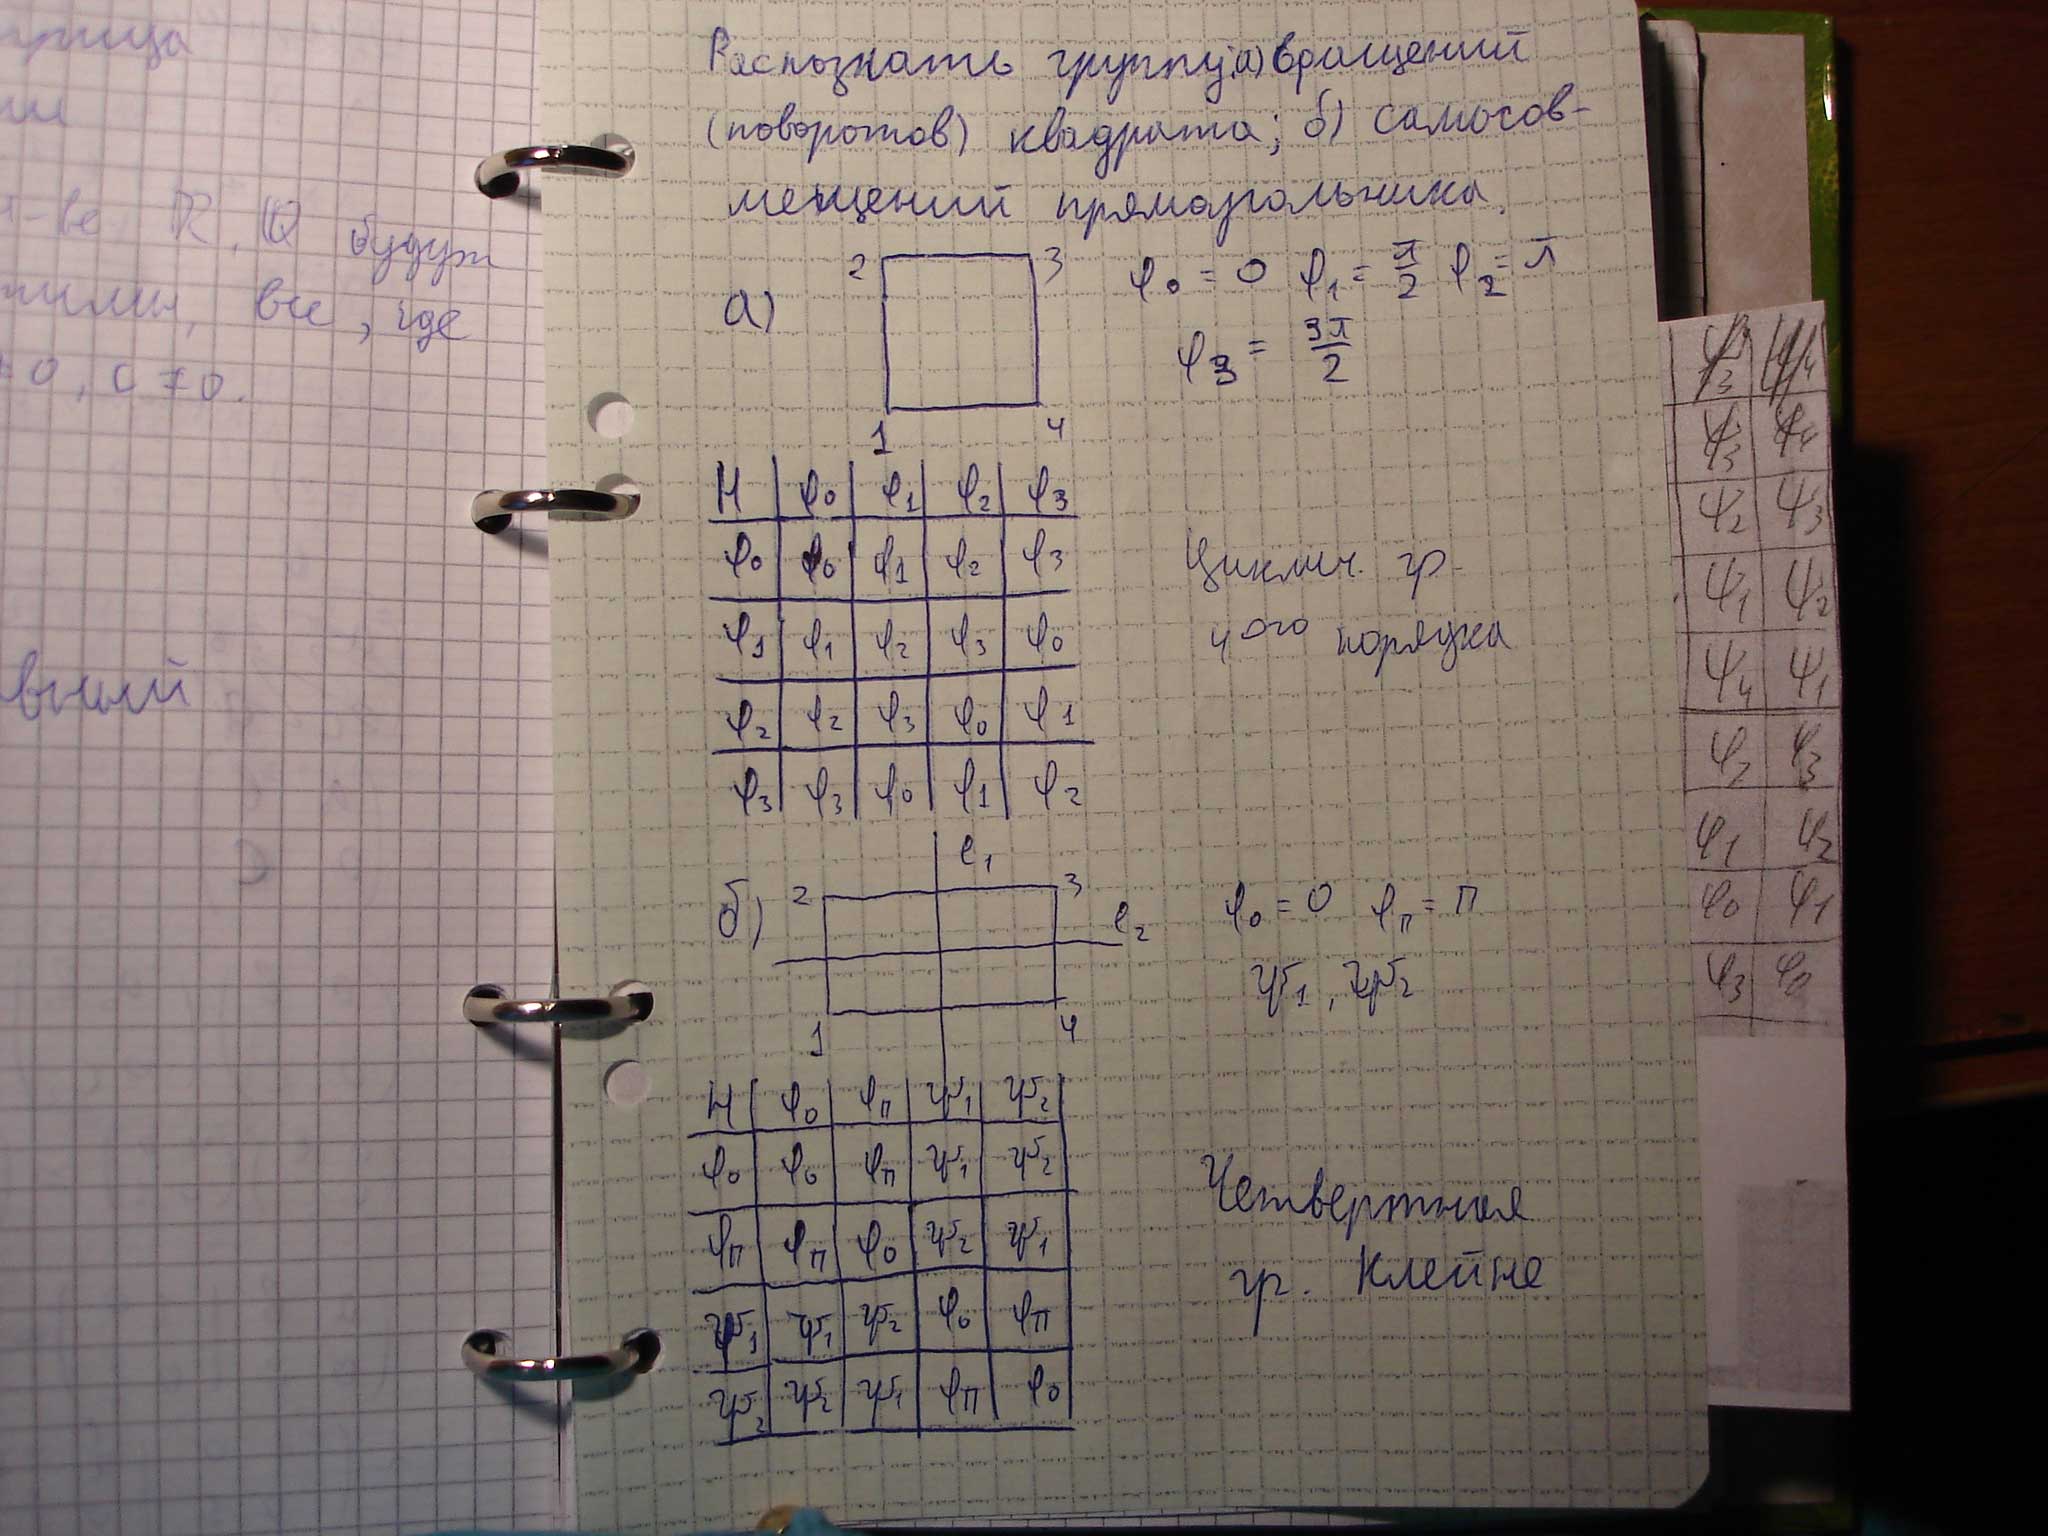 ши
R, Q будут
все, где
≠0, c ≠ 0.
вный
Распознать группу: а) вращений
(поворотов) квадрата; б) самосов-
мещений прямоугольника.
а)
2 3
1 4
φ0 = 0 φ1 = π/2 φ2 = π
φ3 = 3π/2
H φ0 φ1 φ2 φ3
φ0 φ0 φ1 φ2 φ3
φ1 φ1 φ2 φ3 φ0
φ2 φ2 φ3 φ0 φ1
φ3 φ3 φ0 φ1 φ2
Циклич. гр.
4ого порядка
б)
ℓ1
2 3
ℓ2
1 4
φ0 = 0 φπ = π
ψ1, ψ2
H φ0 φπ ψ1 ψ2
φ0 φ0 φπ ψ1 ψ2
φπ φπ φ0 ψ2 ψ1
ψ1 ψ1 ψ2 φ0 φπ
ψ2 ψ2 ψ1 φπ φ0
Четвертная
гр. Клейне
ψ3 ψ4
ψ2 ψ3
ψ1 ψ2
ψ4 ψ1
φ2 φ3
φ1 φ2
φ0 φ1
φ3 φ0